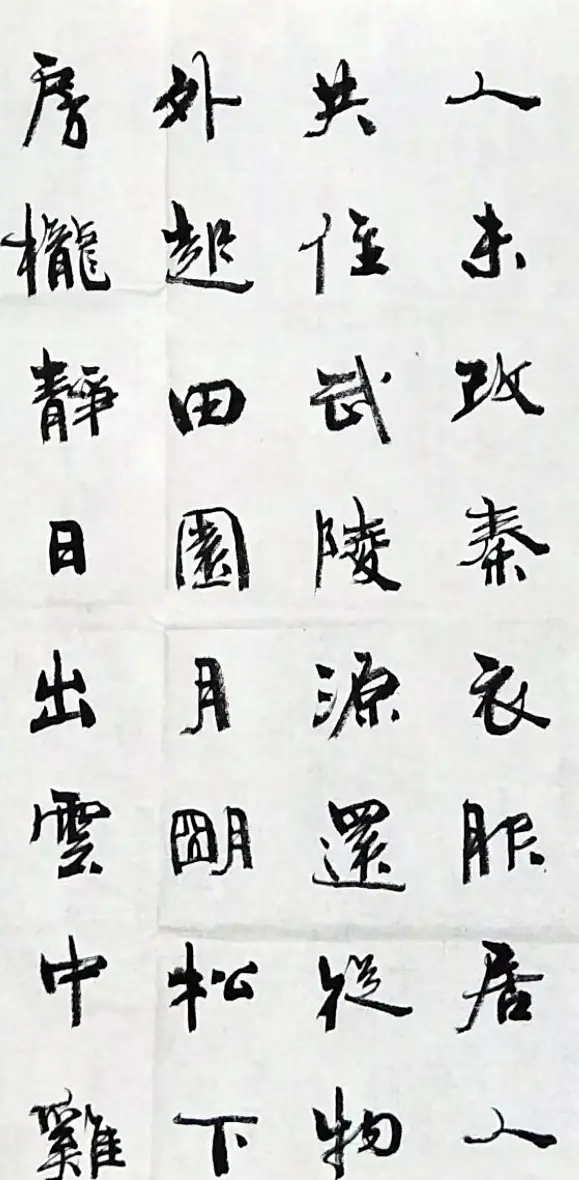 人未改秦衣服居人
共住武陵源還從物
外起田園月明松下
房櫳靜日出雲中雞